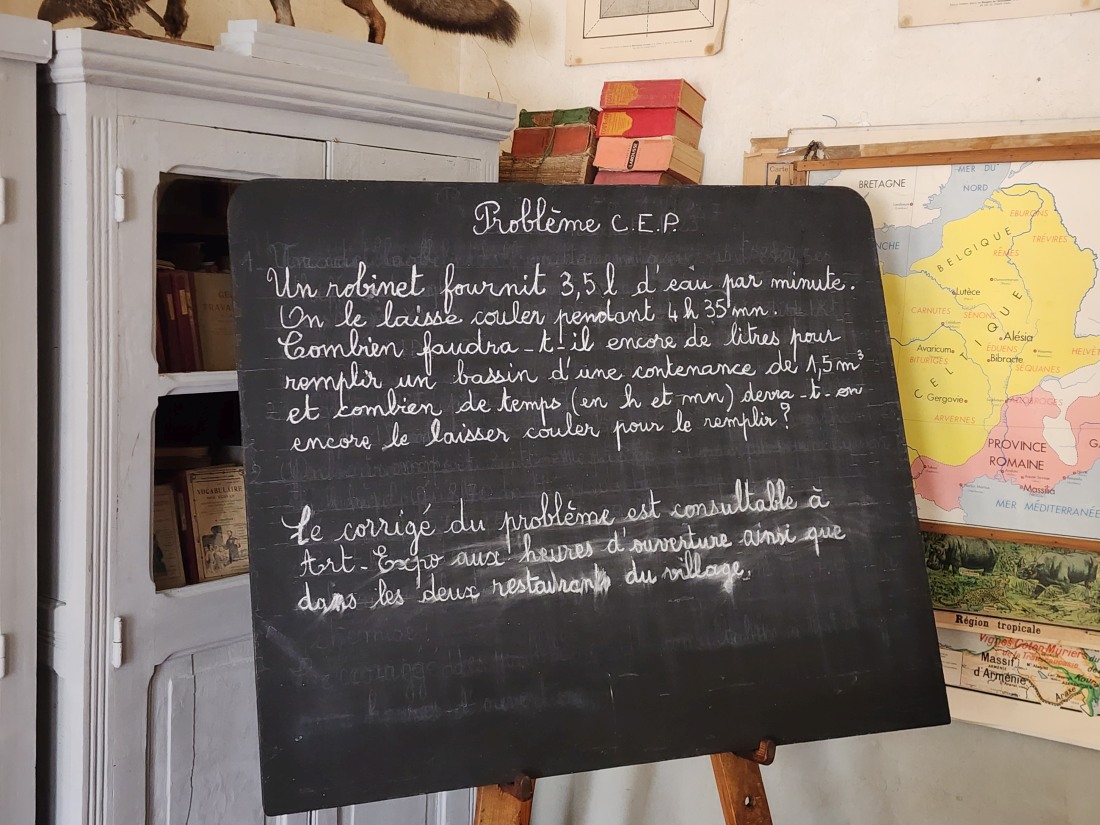 Problème C.E.P.
Un robinet fournit 3,5 l d'eau par minute.
On le laisse couler pendant 4 h 35 mn.
Combien faudra-t-il encore de litres pour
remplir un bassin d'une contenance de 1,5 m³
et combien de temps (en h et mn) devra-t-on
encore le laisser couler pour le remplir?
Le corrigé du problème est consultable à
Art-Expo aux heures d'ouverture ainsi que
dans les deux restaurants du village.
VOCABULAIRE
Carte
4
BRETAGNE
MER DU
NORD
BELGIQUE
EBURONS
TRÉVIRES
RÈMES
Lutèce
CARNUTES
SÉNONS
Alésia
Avaricum
BITURIGES
ÉDUENS
Bibracte
HELVÈT
SÉQUANES
CELTIQUE
Gergovie
ARVERNES
ALLOBROGES
PROVINCE
ROMAINE
Massilia
MER MÉDITERRANÉE
Région tropicale
Massif
d'Arménie